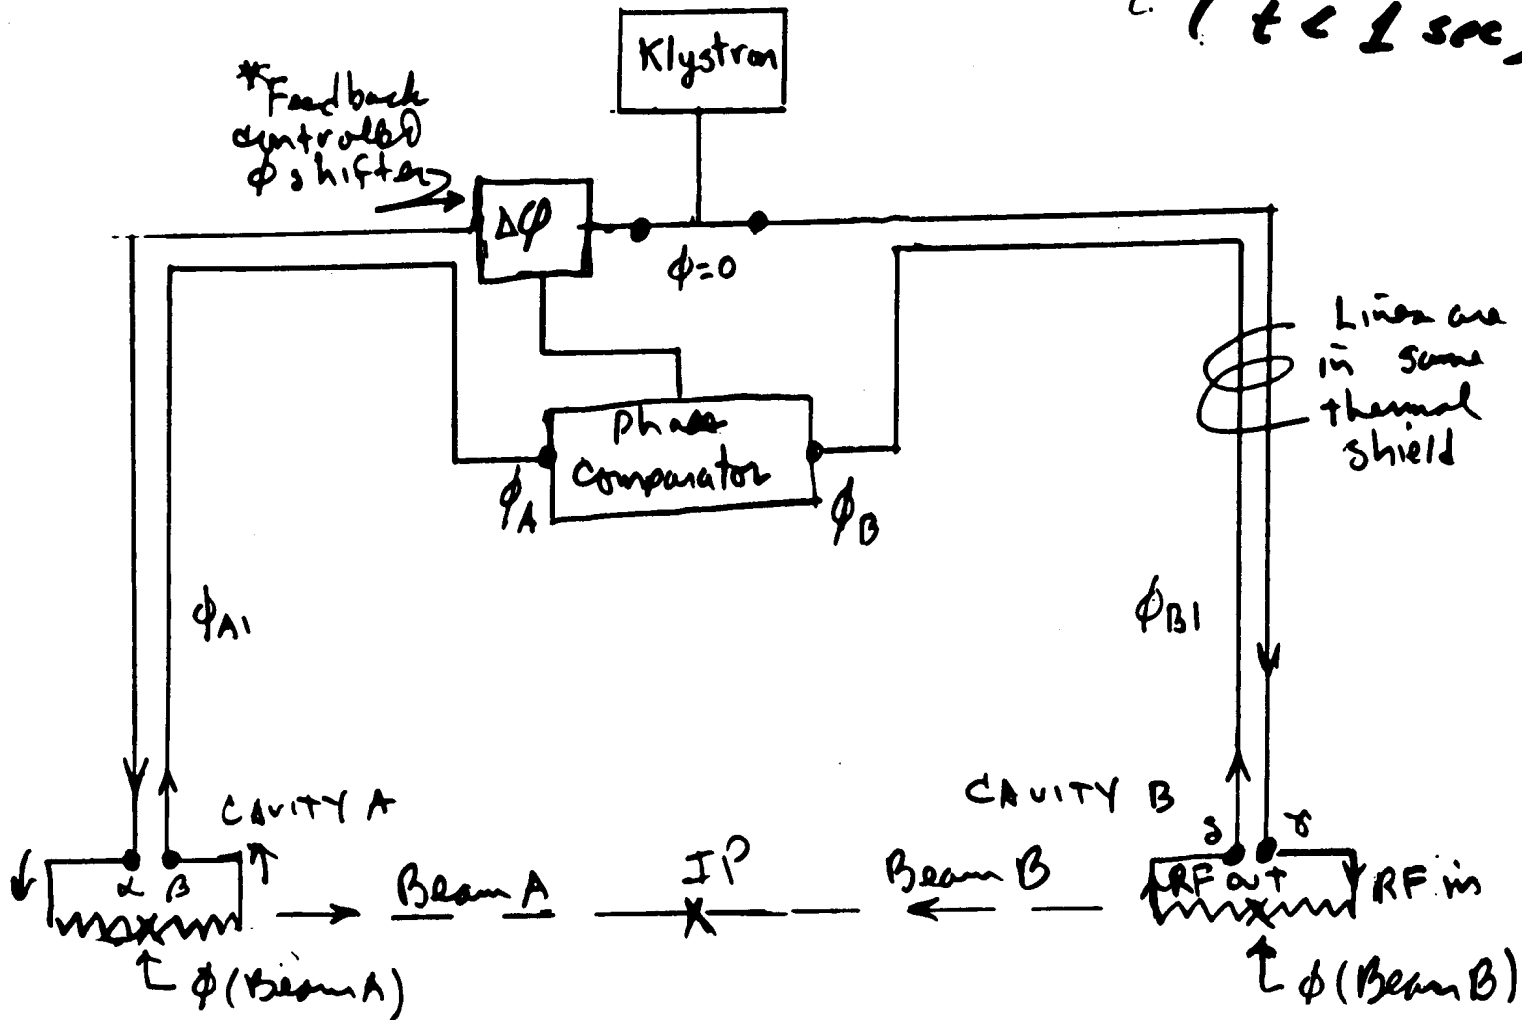 ( t < 1 sec,
Klystron
*Feedback
controlled
ϕ shifter
Δφ
ϕ=0
Lines are
in same
thermal
shield
Phase
Comparator
ϕA
ϕB
ϕA1
ϕB1
CAVITY A
CAVITY B
α β
δ γ
Beam A
IP
Beam B
RF out
RF in
ϕ(Beam A)
ϕ(Beam B)